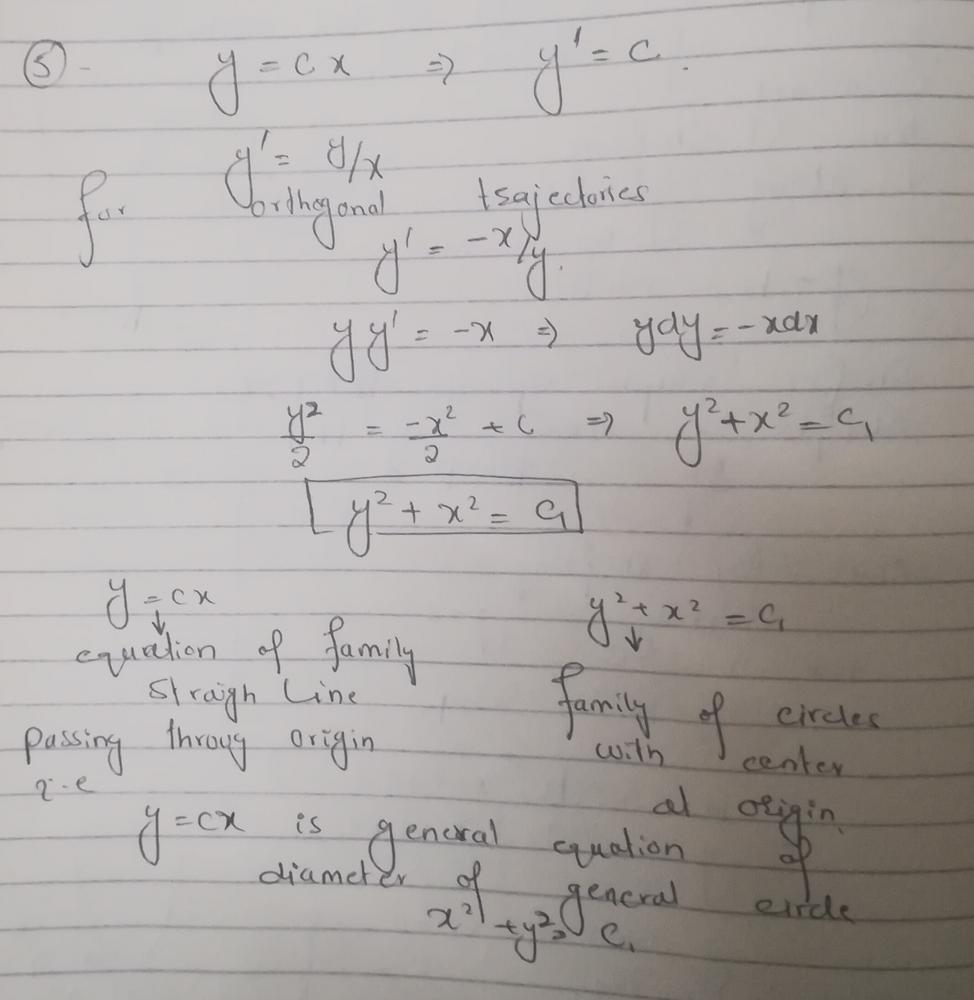 (5) - y = cx ⇒ y' = c.
y' = y/x
for orthogonal trajectories
y' = -x/y.
yy' = -x ⇒ ydy = -xdx
y²/2 = -x²/2 + c ⇒ y² + x² = c₁
y² + x² = c₁
y = cx
↓
equation of family
straigh line
passing throuy origin
i.e
y² + x² = c₁
↓
family of circles
with center
at origin.
y = cx is general equation of
diameter of general circle
x² + y² = c₁